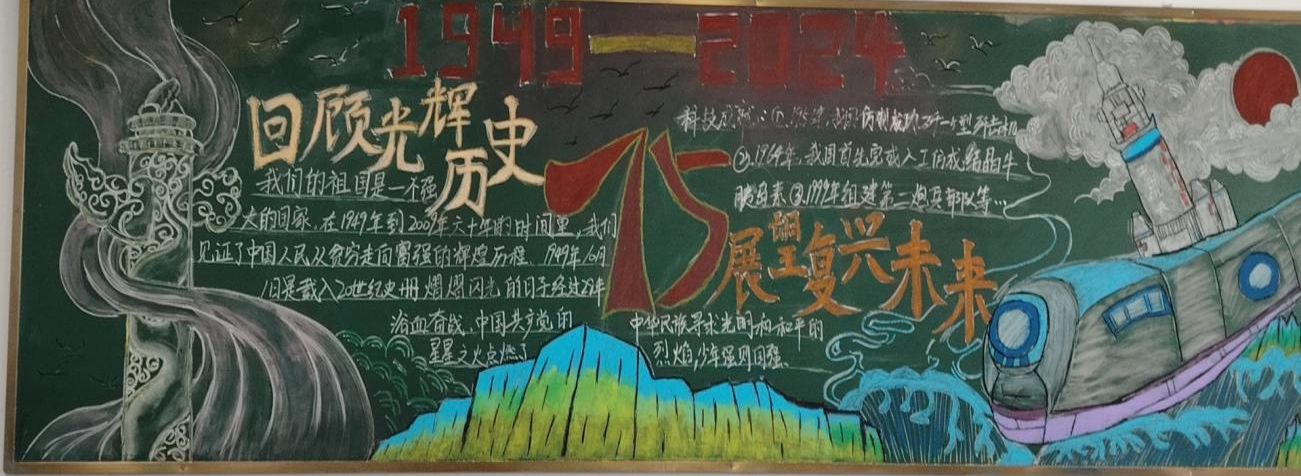 1949—2024
回顾光辉历史
我们的祖国是一个强
大的国家,在1949年到2009年六十年的时间里,我们
见证了中国人民从贫穷走向富强的辉煌历程 1949年10月
1日是载入20世纪史册熠熠闪光的日子经过25年
浴血奋战,中国共产党的
星星之火点燃了
中华民族寻求光明和和平的
烈焰,少年强则国强
75
科技成就:①,195 年,我国仿制成功 型
②,1964年,我国首先完成人工合成结晶牛
胰岛素③,1999年组建第二炮兵部队等…
展望复兴未来